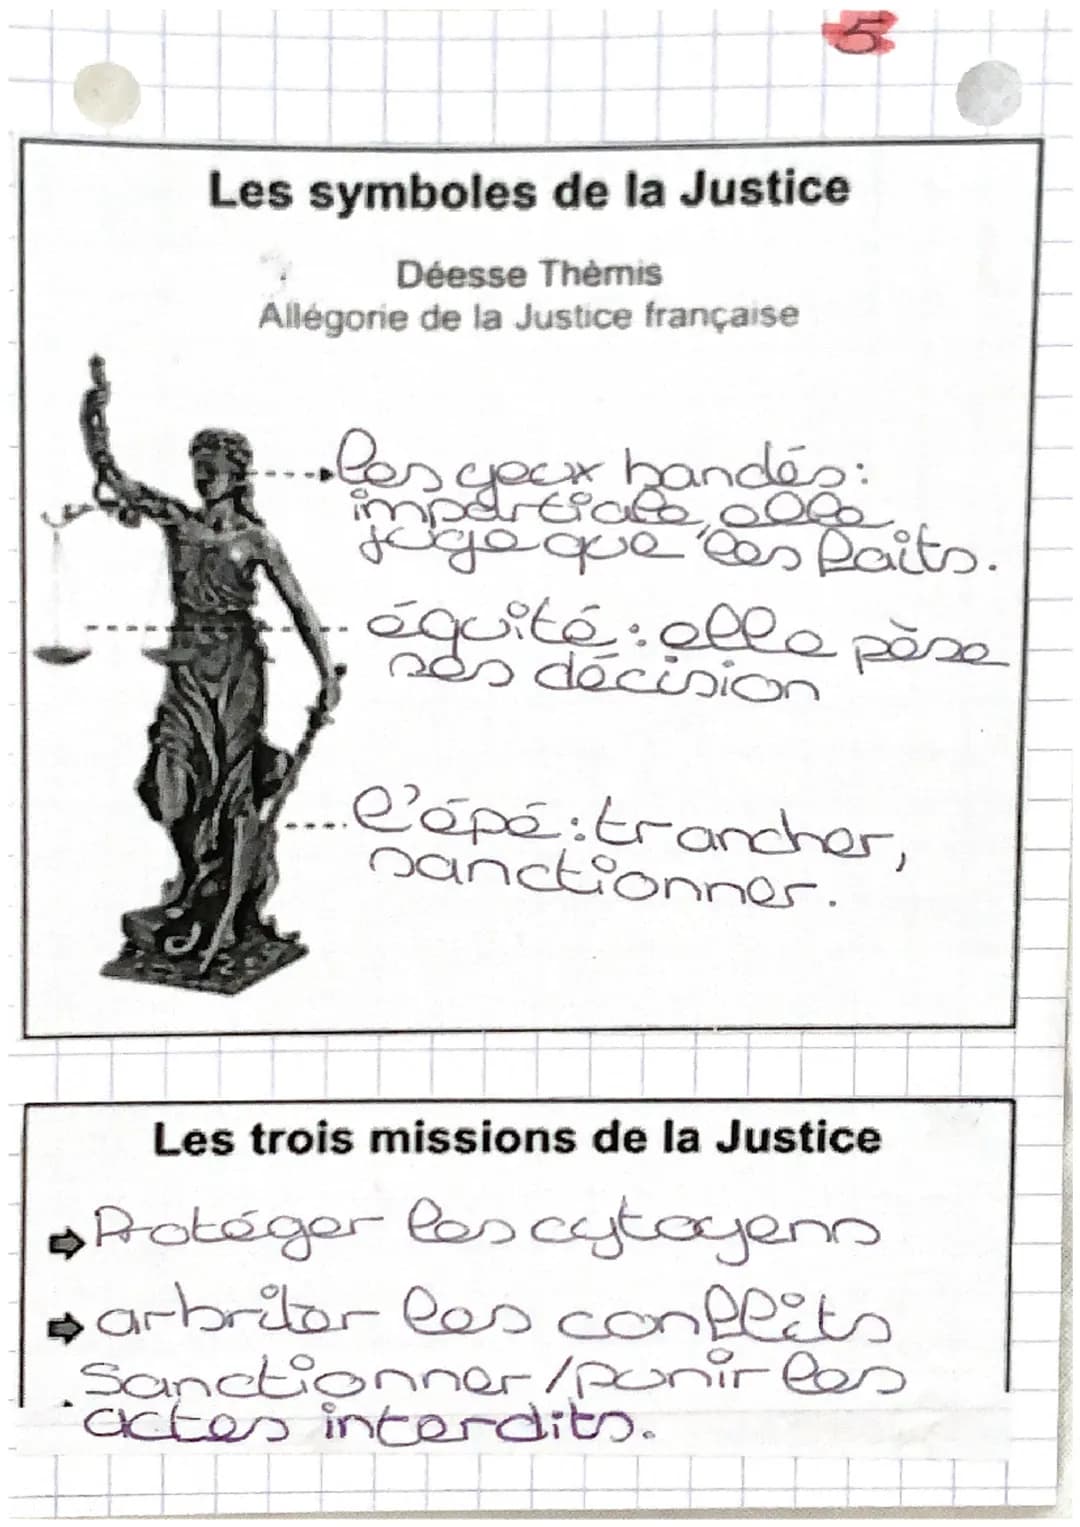 5
Les symboles de la Justice
Déesse Thèmis
Allégorie de la Justice française
les yeux bandés:
impartiale, elle
juge que les faits.
équité: elle pèse
ses décision
l'épé: trancher,
sanctionner.
Les trois missions de la Justice
Protéger les cytoyens
arbriter les conflits
Sanctionner/punir les
actes interdits.